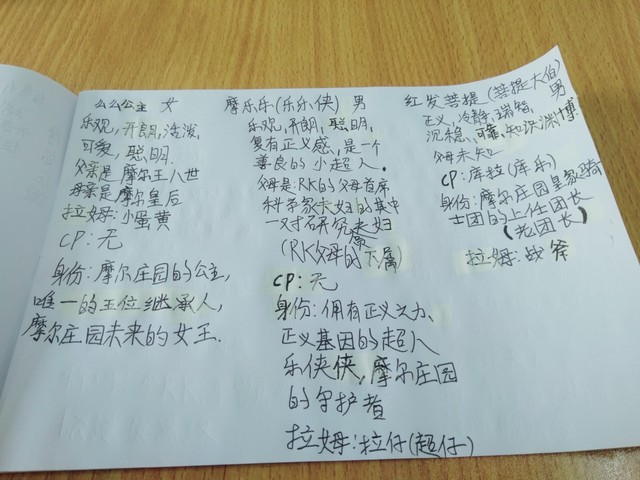 么么公主 女
乐观，开朗，活泼，
可爱，聪明.
父亲是摩尔王八世
母亲是摩尔皇后
拉姆:小蛋黄
CP:无
身份:摩尔庄园的公主，
唯一的王位继承人，
摩尔庄园未来的女王.
摩乐乐(乐乐侠) 男
乐观，开朗，聪明，
复有正义感，是一个
善良的小超人。
父母是:RK的父母首席
科学家夫妇的其中
一对研究夫妇
(RK父母的下属)
CP:无
身份:佣有正义之力、
正义基因的超人
乐侠侠，摩尔庄园
的守护者
拉姆:拉仔(超仔)
红发菩提(菩提大伯)
男
正义，冷静，睿智，
沉稳，可靠，知识渊博
父母未知
CP:库拉(库乐)
身份:摩尔庄园皇家骑
士团的上任团长
(老团长)
拉姆:战斧